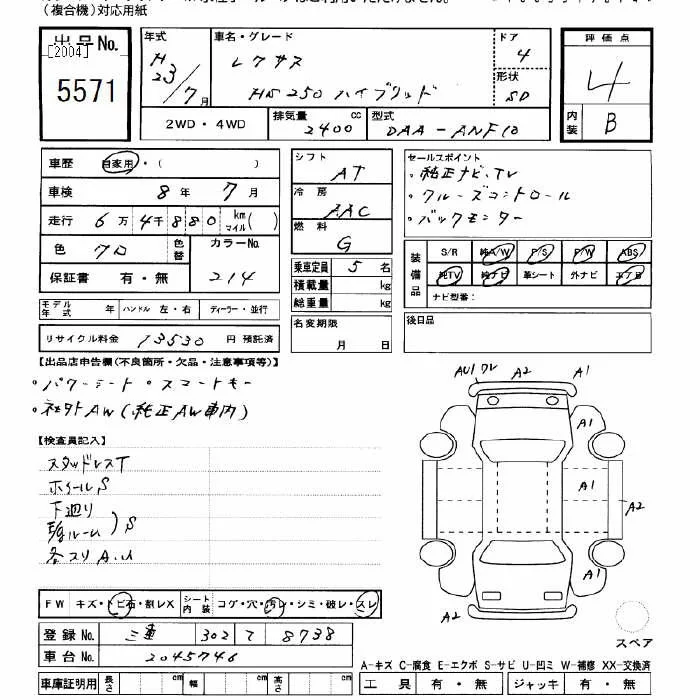 (複合機)対応用紙
出品No. [2004] 5571
年式 H23/7月
車名・グレード レクサス HS250 ハイブリッド
ドア 4
形状 SD
評価点 4
内装 B
2WD・4WD
排気量 2400 cc
型式 DAA-ANF10
車歴 自家用・( )
車検 8年 7月
走行 6万4千880 km マイル( )
色 クロ 色替 カラーNo. 214
保証書 有・無
モデル年式 年 ハンドル 左・右 ディーラー・並行
リサイクル料金 13530 円 預託済
シフト AT
冷房 AAC
燃料 G
乗車定員 5 名
積載量 kg
総重量 kg
名変期限 月 日
セールスポイント
・純正ナビ、TV
・クルーズコントロール
・バックモニター
装備品 S/R 純A/W P/S P/W ABS
純TV 純ナビ 革シート 外ナビ エアB
ナビ型番:
後日品
【出品店申告欄(不良箇所・欠品・注意事項等)】
・パワーシート ・スマートキー
・社外AW(純正AW車内)
【検査員記入】
スタッドレスT
ホイールS
下廻り
ルーム)S
各スリA.U
AU1 A2 A1
A1
A1
A2
A1
A2
スペア
FW キズ・トビ石・割レX シート内装 コゲ・穴・汚レ・シミ・破レ・スレ
登録No. 三重 302 て 8738
車台No. 2045746
車庫証明用 長さ cm 幅 cm 高さ cm
A-キズ C-腐食 E-エクボ S-サビ U-凹ミ W-補修 XX-交換済
工具 有・無 ジャッキ 有・無